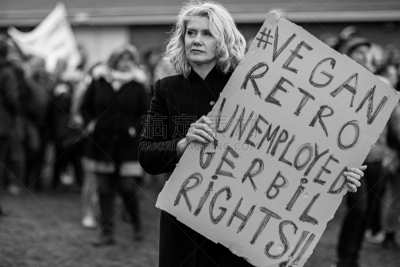 #VEGAN
RETRO
UNEMPLOYED
GERBIL
RIGHTS!!